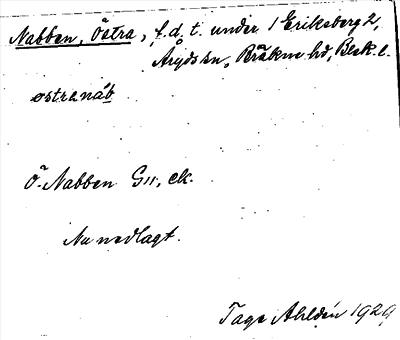 Nabben, Östra, f.d. t. under 1 Eriksberg 2,
Åryds sn, Bräkne hd, Blek. l.
østranáb
Ö. Nabben G11, ek.
Nu nedlagt.
Tage Ahldén 1929